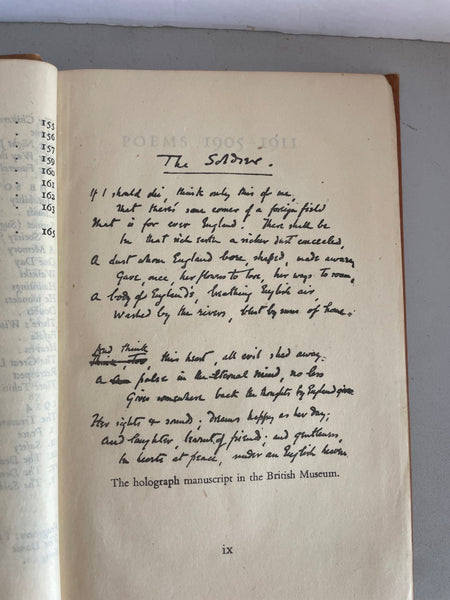 155
156
157
159
160
161
162
163
165
POEMS 1905 1911
The Soldier.
If I should die, think only this of me.
That there's some corner of a foreign field
That is for ever England. There shall be
In that rich earth a richer dust concealed,
A dust whom England bore, shaped, made aware,
Gave, once, her flowers to love, her ways to roam,
A body of England's, breathing English air,
Washed by the rivers, blest by suns of home.
And think
Think, too, this heart, all evil shed away.
A pulse in the Eternal mind, no less
Gives somewhere back the thoughts by England given
Her sights & sound; dreams happy as her day;
And laughter, learnt of friends; and gentleness,
In hearts at peace, under an English heaven.
The holograph manuscript in the British Museum.
ix